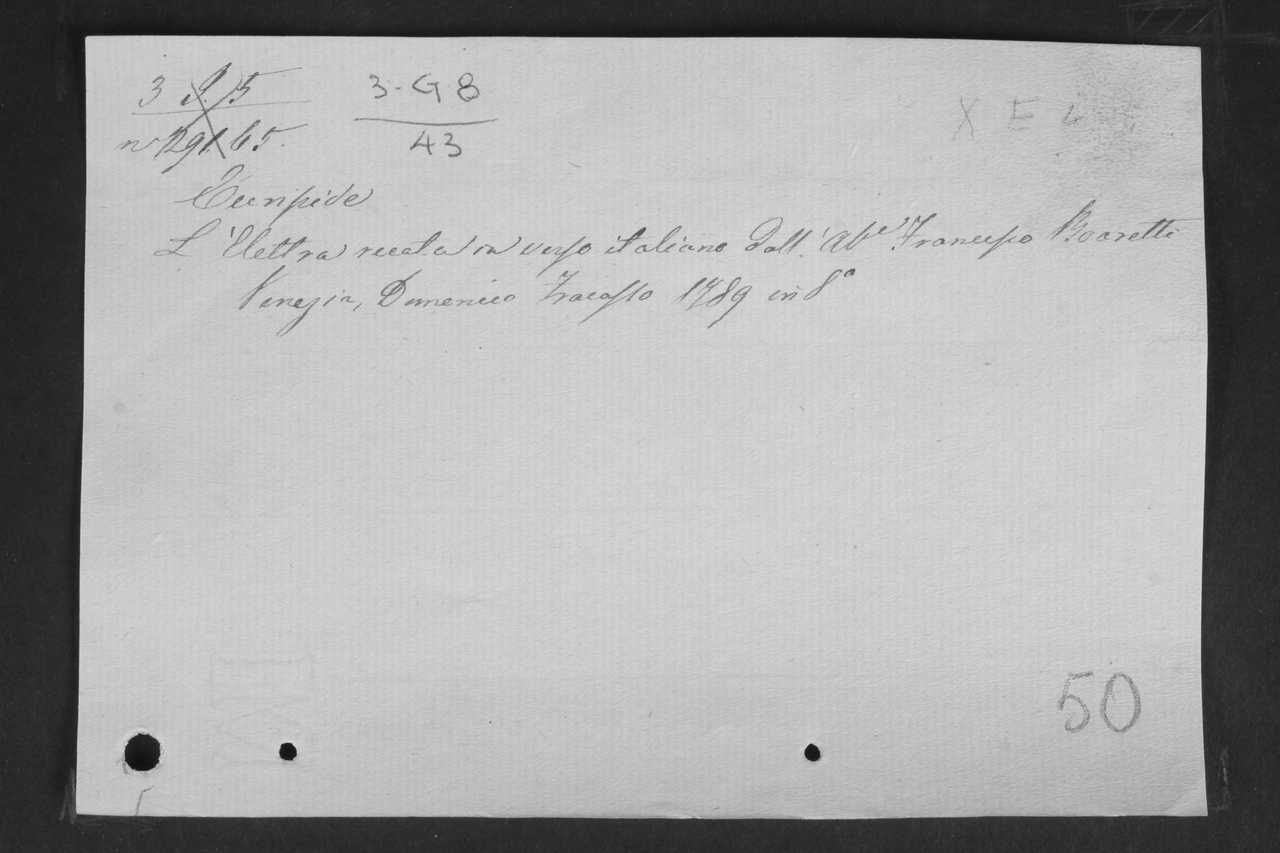 3 5 3-G8
n° 29. 65. 43
X E L
Euripide
L'Elettra recata in verso italiano dall'Abe Francesco Boaretti
Venezia, Domenico Fracasso 1789 in 8°
50